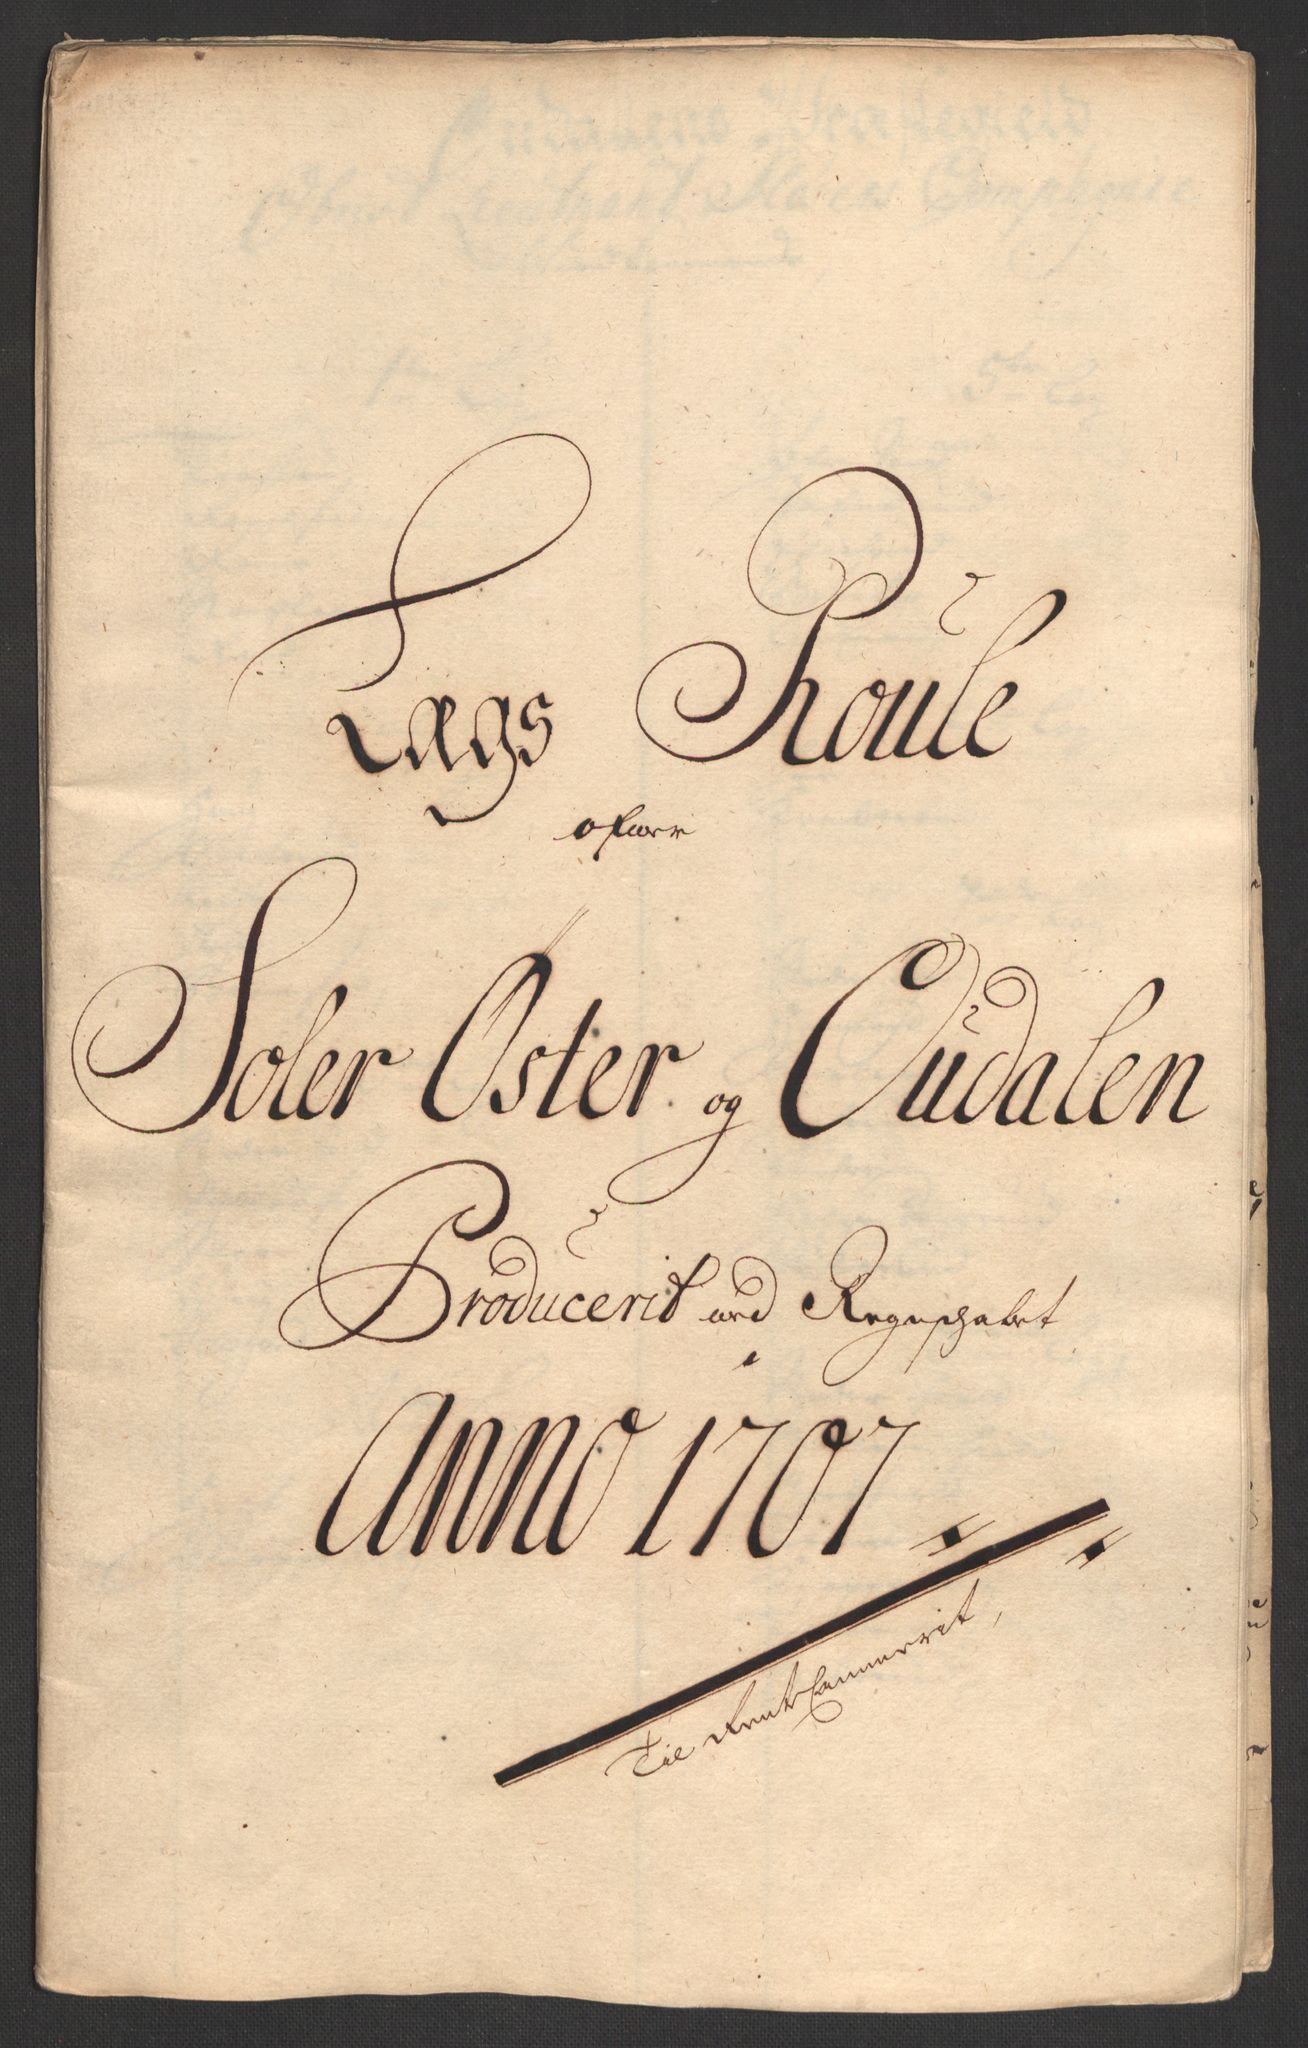 Lægs Roule
ofuer
Soler Øster og Oudalen
Producerit ved Regnschabet
Anno 1707
Til Rent Cammerit,